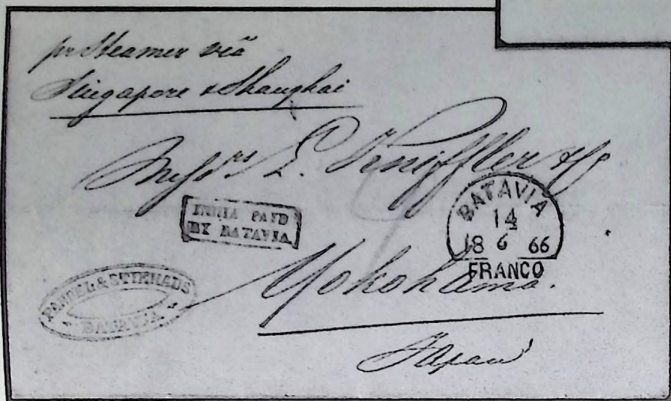 pr Steamer via
Singapore & Shanghai
Messrs L. Kniffler & Co
INDIA PAID
BY BATAVIA
BATAVIA
14
18 6 66
FRANCO
PANDEL & STIEHAUS
BATAVIA
Yokohama.
Japan